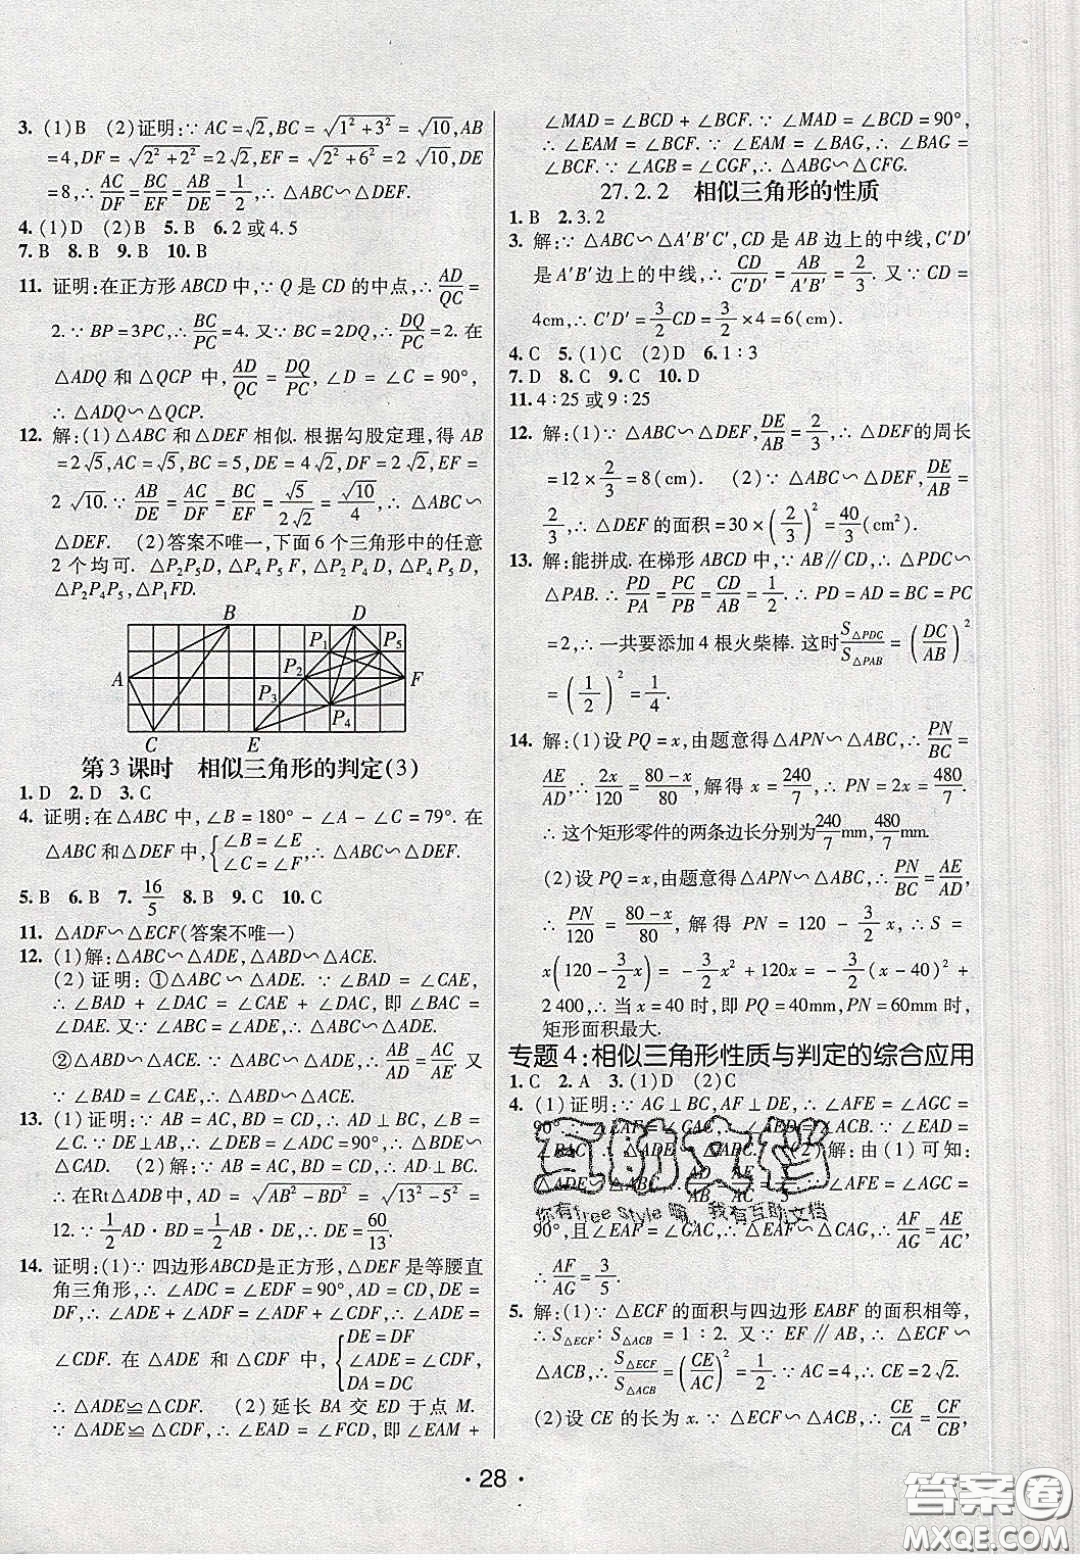 3. (1)B (2)证明:∵AC=√2,BC=√(1²+3²)=√10,AB
=4,DF=√(2²+2²)=2√2,EF=√(2²+6²)=2√10,DE
=8,∴AC/DF=BC/EF=AB/DE=1/2,∴△ABC∽△DEF.
4. (1)D (2)B 5. B 6. 2或4.5
7. B 8. B 9. B 10. B
11. 证明:在正方形ABCD中,∵Q是CD的中点,∴AD/QC=
2.∵BP=3PC,∴BC/PC=4.又∵BC=2DQ,∴DQ/PC=2.在
△ADQ和△QCP中,AD/QC=DQ/PC,∠D=∠C=90°,
∴△ADQ∽△QCP.
12. 解:(1)△ABC和△DEF相似.根据勾股定理,得AB
=2√5,AC=√5,BC=5,DE=4√2,DF=2√2,EF=
2√10.∵AB/DE=AC/DF=BC/EF=√5/2√2=√10/4,∴△ABC∽
△DEF. (2)答案不唯一,下面6个三角形中的任意
2个均可.△P₂P₅D,△P₄P₅F,△P₂P₄D,△P₄P₅D,
△P₂P₄P₅,△P₁FD.
B D
P₁ P₅
A P₂ F
P₃
P₄
C E
第3课时 相似三角形的判定(3)
1. D 2. D 3. C
4. 证明:在△ABC中,∠B=180°-∠A-∠C=79°.在
△ABC和△DEF中,{∠B=∠E ∠C=∠F,∴△ABC∽△DEF.
5. B 6. B 7. 16/5 8. B 9. C 10. C
11. △ADF∽△ECF(答案不唯一)
12. (1)解:△ABC∽△ADE,△ABD∽△ACE.
(2)证明:①△ABC∽△ADE.∵∠BAD=∠CAE,
∴∠BAD+∠DAC=∠CAE+∠DAC,即∠BAC=
∠DAE.又∵∠ABC=∠ADE,∴△ABC∽△ADE.
②△ABD∽△ACE.∵△ABC∽△ADE,∴AB/AD=AC/AE.又
∵∠BAD=∠CAE,∴△ABD∽△ACE.
13. (1)证明:∵AB=AC,BD=CD,∴AD⊥BC,∠B=
∠C.∵DE⊥AB,∴∠DEB=∠ADC=90°,∴△BDE∽
△CAD. (2)解:∵AB=AC,BD=CD,∴AD⊥BC.
∴在Rt△ADB中,AD=√(AB²-BD²)=√(13²-5²)=
12.∵1/2AD·BD=1/2AB·DE,∴DE=60/13.
14. 证明:(1)∵四边形ABCD是正方形,△DEF是等腰直
角三角形,∴∠ADC=∠EDF=90°,AD=CD,DE=
DF,∴∠ADE+∠ADF=∠ADF+∠CDF,∴∠ADE=
∠CDF.在△ADE和△CDF中,{DE=DF ∠ADE=∠CDF DA=DC
∴△ADE≌△CDF. (2)延长BA交ED于点M.
∵△ADE≌△CDF,∴∠EAD=∠FCD,即∠EAM+
∠MAD=∠BCD+∠BCF.∵∠MAD=∠BCD=90°,
∴∠EAM=∠BCF.∵∠EAM=∠BAG,∴∠BAG=
∠BCF.∵∠AGB=∠CGF,∴△ABG∽△CFG.
27.2.2 相似三角形的性质
1. B 2. 3.2
3. 解:∵△ABC∽△A′B′C′,CD是AB边上的中线,C′D′
是A′B′边上的中线,∴CD/C′D′=AB/A′B′=2/3.又∵CD=
4cm,∴C′D′=3/2CD=3/2×4=6(cm).
4. C 5. (1)C (2)D 6. 1∶3
7. D 8. C 9. C 10. D
11. 4∶25或9∶25
12. 解:(1)∵△ABC∽△DEF,DE/AB=2/3,∴△DEF的周长
=12×2/3=8(cm) (2)∵△ABC∽△DEF,DE/AB=
2/3,∴△DEF的面积=30×(2/3)²=40/3(cm²).
13. 解:能拼成.在梯形ABCD中,∵AB∥CD,∴△PDC∽
△PAB.∴PD/PA=PC/PB=CD/AB=1/2.∴PD=AD=BC=PC
=2,∴一共要添加4根火柴棒.这时S△PDC/S△PAB=(DC/AB)²
=(1/2)²=1/4.
14. 解:(1)设PQ=x,由题意得△APN∽△ABC,∴PN/BC=
AE/AD,∴2x/120=(80-x)/80,解得x=240/7,∴PN=2x=480/7.
∴这个矩形零件的两条边长分别为240/7mm,480/7mm.
(2)设PQ=x,由题意得△APN∽△ABC,∴PN/BC=AE/AD,
∴PN/120=(80-x)/80,解得PN=120-3/2x,∴S=
x(120-3/2x)=-3/2x²+120x=-3/2(x-40)²+
2 400,∴当x=40时,即PQ=40mm,PN=60mm时,
矩形面积最大.
专题4:相似三角形性质与判定的综合应用
1. C 2. A 3. (1)D (2)C
4. (1)证明:∵AG⊥BC,AF⊥DE,∴∠AFE=∠AGC=
90°.∵∠EAF=∠GAC,∴∠AED=∠ACB.∵∠EAD=
∠BAC,∴△ADE∽△ABC. (2)解:由(1)可知:
△ADE∽△ABC,∴AD/AB=AE/AC=3/5.∵∠AFE=∠AGC=
90°,且∠EAF=∠GAC,∴△EAF∽△CAG,∴AF/AG=AE/AC,
∴AF/AG=3/5.
5. 解:(1)∵△ECF的面积与四边形EABF的面积相等,
∴S△ECF∶S△ACB=1∶2.又∵EF∥AB,∴△ECF∽
△ACB,∴S△ECF/S△ACB=(CE/AC)²=1/2.∵AC=4,∴CE=2√2.
(2)设CE的长为x.∵△ECF∽△ACB,∴CE/CA=CF/CB,
互助文档
你有free style吗,我有互助文档
·28·
答案圈
MXQE.COM